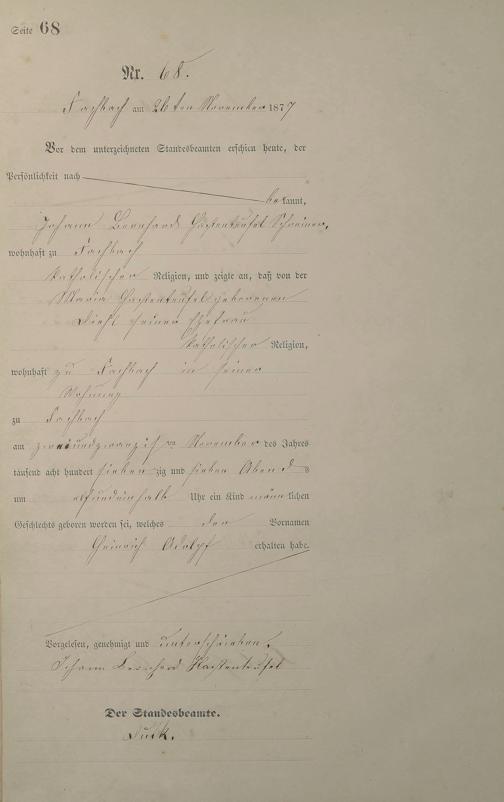 Seite 68
Nr. 68.
Fachbach am 26ten November 1877
Vor dem unterzeichneten Standesbeamten erschien heute, der
Persönlichkeit nach
bekannt,
Johann Bernhard Hastenteufel Schreiner,
wohnhaft zu Fachbach
katholischer Religion, und zeigte an, daß von der
Maria Hastenteufel geborenen
Diehl seiner Ehefrau
katholischer Religion,
wohnhaft zu Fachbach in seiner
Wohnung
zu Fachbach
am zweiundzwanzigten November des Jahres
tausend acht hundert siebenzig und sieben Abends
um elfundeinhalb Uhr ein Kind männlichen
Geschlechts geboren worden sei, welches den Vornamen
Heinrich Adolph erhalten habe.
Vorgelesen, genehmigt und unterschrieben.
Johann Bernhard Hastenteufel
Der Standesbeamte.